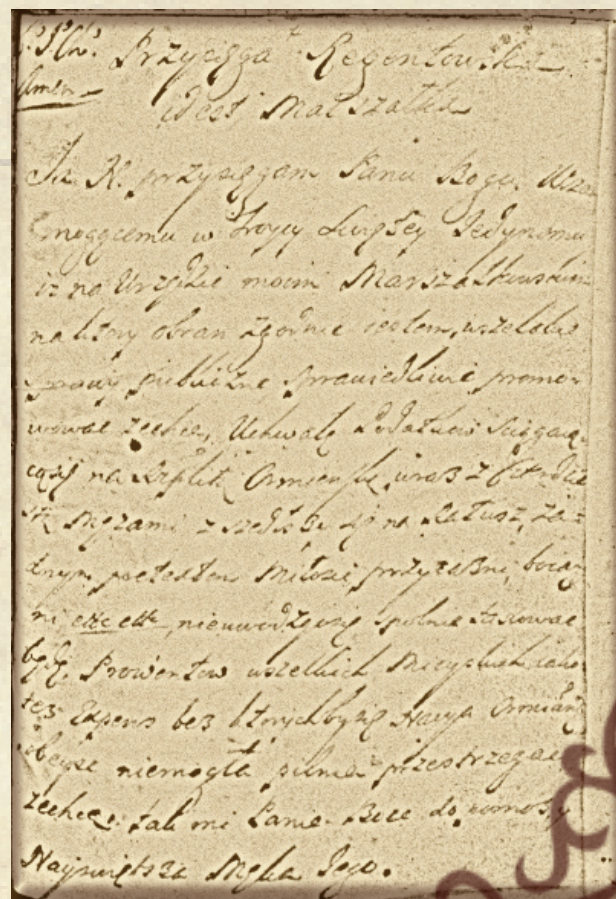 Przysięga Regentowska
idest Marszałka
Ja N. przysięgam Panu Bogu Wszech
mogącemu w Troycy Swiętey Jedynemu
iz na Urzędzie moim Marszałkowskim
na ktory obran zgodnie iestem, wszelkie
sprawy publiczne sprawiedliwie promo-
wować zechcę, Uchwałę Podatków sciągaią
cąsię na Rzplitę Ormenską, wraz z
Męzami zszedłszy się na Ratusz, za-
dnym pretextem Miłości, przyiazni, boiaz
ni, etc etc, nieuwodząc się spolnie
będę. Prowentow wszelkich Mieyskich iako
tez Expens bez ktorychby się Nacya Ormian
obeysć niemogła pilnie przestrzegać
zechcę. Tak mi Panie Boze do pomozy
Nayswiętsza Męka Jego.